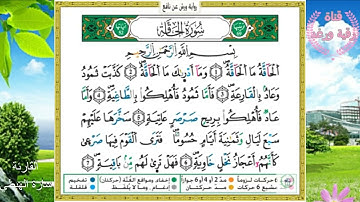 رواية ورش عن نافع
قناة
رقية ورغد
سُورَةُ الْحَاقَّةِ
بِسْمِ اللَّهِ الرَّحْمَٰنِ الرَّحِيمِ
الْحَاقَّةُ مَا الْحَاقَّةُ وَمَا أَدْرِيكَ مَا الْحَاقَّةُ كَذَّبَتْ ثَمُودُ
وَعَادٌ بِالْقَارِعَةِ فَأَمَّا ثَمُودُ فَأُهْلِكُوا بِالطَّاغِيَةِ وَأَمَّا
عَادٌ فَأُهْلِكُوا بِرِيحٍ صَرْصَرٍ عَاتِيَةٍ سَخَّرَهَا عَلَيْهِمْ
سَبْعَ لَيَالٍ وَثَمَانِيَةَ أَيَّامٍ حُسُومًا فَتَرَى الْقَوْمَ فِيهَا صَرْعَى
كَأَنَّهُمْ أَعْجَازُ نَخْلٍ خَاوِيَةٍ فَهَلْ تَرَى لَهُمْ مِنْ بَاقِيَةٍ
القارئة
سارة البيضي